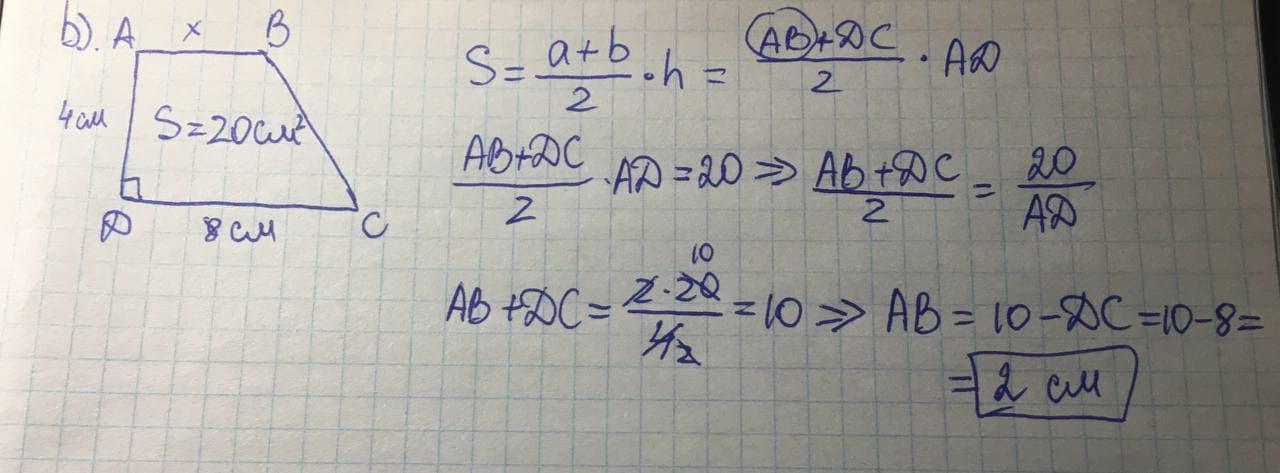 b). A x B
4см S=20см²
D 8 см C
S = (a+b)/2 · h = (AB+DC)/2 · AD
(AB+DC)/2 · AD = 20 ⇒ (AB+DC)/2 = 20/AD
AB+DC = (2·20)/4 = 10 ⇒ AB = 10-DC = 10-8 =
10
2
= 2 см